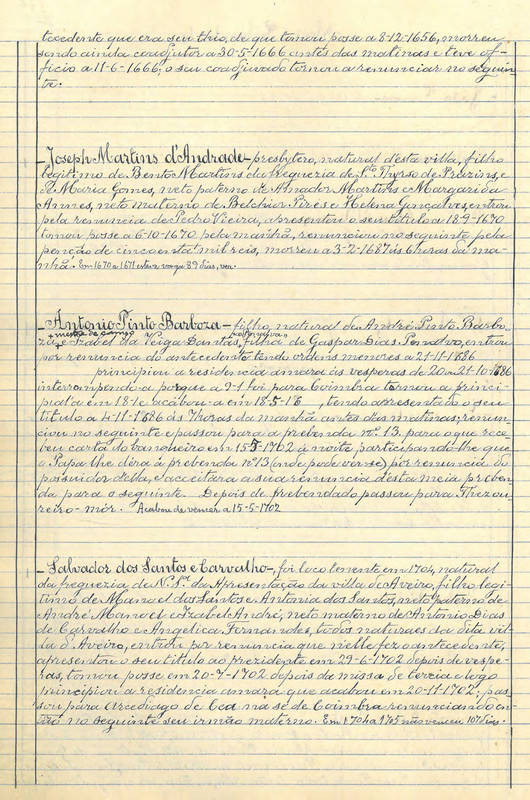 tecedente que era seu thio, de que tomou posse a 8-12-1656, morreu
sendo ainda coadjutor a 30-5-1666 antes das matinas e teve of-
ficio a 11-6-1666; o seu coadjuvado tornou a renunciar no seguin
te.
-Joseph Martins d'Andrade- presbytero, natural d'esta villa, filho
legitimo de Bento Martins da freguezia de Sto Thyrso de Prazins, e
de Maria Gomes, neto paterno de Amador Martins e Margarida
Annes, neto materno de Belchior Pires e Helena Gonçalves, entrou
pela renuncia de Pedro Vieira, apresentou o seu titulo a 18-9-1670
tomou posse a 6-10-1670 pela manhã, renunciou no seguinte pela
penção de cincoenta mil reis, morreu a 3-2-1687 ás 6 horas da ma-
nhã. Em 1670 a 1671 esteve vago 89 dias,
-Antonio Pinto Barboza- filho, natural de André Pinto Barbo-
za, mestre de campo e Izabel da Veiga Dantas, filha de Gaspar Dias entrou
por renuncia do antecedente tendo ordens menores a 21-11-1686
principiou a residencia amara ás vesperas de 20 21-10-1686
interrompendo-a porque a 9-1 foi para Coimbra tornou a princi-
pial-a em 18-1 e acabou-a em 18-5-18 , tendo apresentado o seu
titulo a 4-11-1686 ás 7 horas da manhã antes das matinas; renun-
ciou no seguinte e passou para a prebenda nº. 13, para o que rece
beu carta do banqueiro em 15-5-1702 á noite participando-lhe que
o Papa lhe dera a prebenda nº 13 (onde pode ver-se) por renuncia do
possuidor della, e acceitára a sua renuncia desta meia preben
da para o seguinte. Depois de prebendado passou para Thezou-
reiro-mór. Acabou de vencer a 15-5-1702
-Salvador dos Santos e Carvalho-, foi loco tenente em 1704, natural
da freguezia de N. Srª. da Apresentação da villa de Aveiro, filho legi-
timo de Manoel dos Santos e Antonia dos Santos, neto paterno de
André Manoel e Izabel André, neto materno de Antonio Dias
de Carvalho e Angelica Fernandes, todos naturaes da dita vil-
la d'Aveiro, entrou por renuncia que nelle fez o antecedente,
apresentou o seu titulo ao prezidente em 29-6-1702 depois de vespe-
ras, tomou posse em 20-7-1702 depois da missa de terceia e logo
principiou a residencia amara que acabou em 20-11-1702; pas
sou para arcediago de Cea na sé de Coimbra renunciando en-
tão no seguinte seu irmão materno. Em 1704 a 1705 não venceu 107 dias.